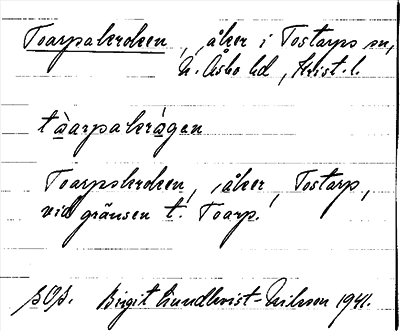 Toarpakroken, åker i Tostarps sn,
N. Åsbo hd, Krist. l.
tàarpakrågen
Toarpskroken, åker, Tostarp,
vid gränsen t. Toarp.
Birgit Lundkvist-Nilsson 1941.